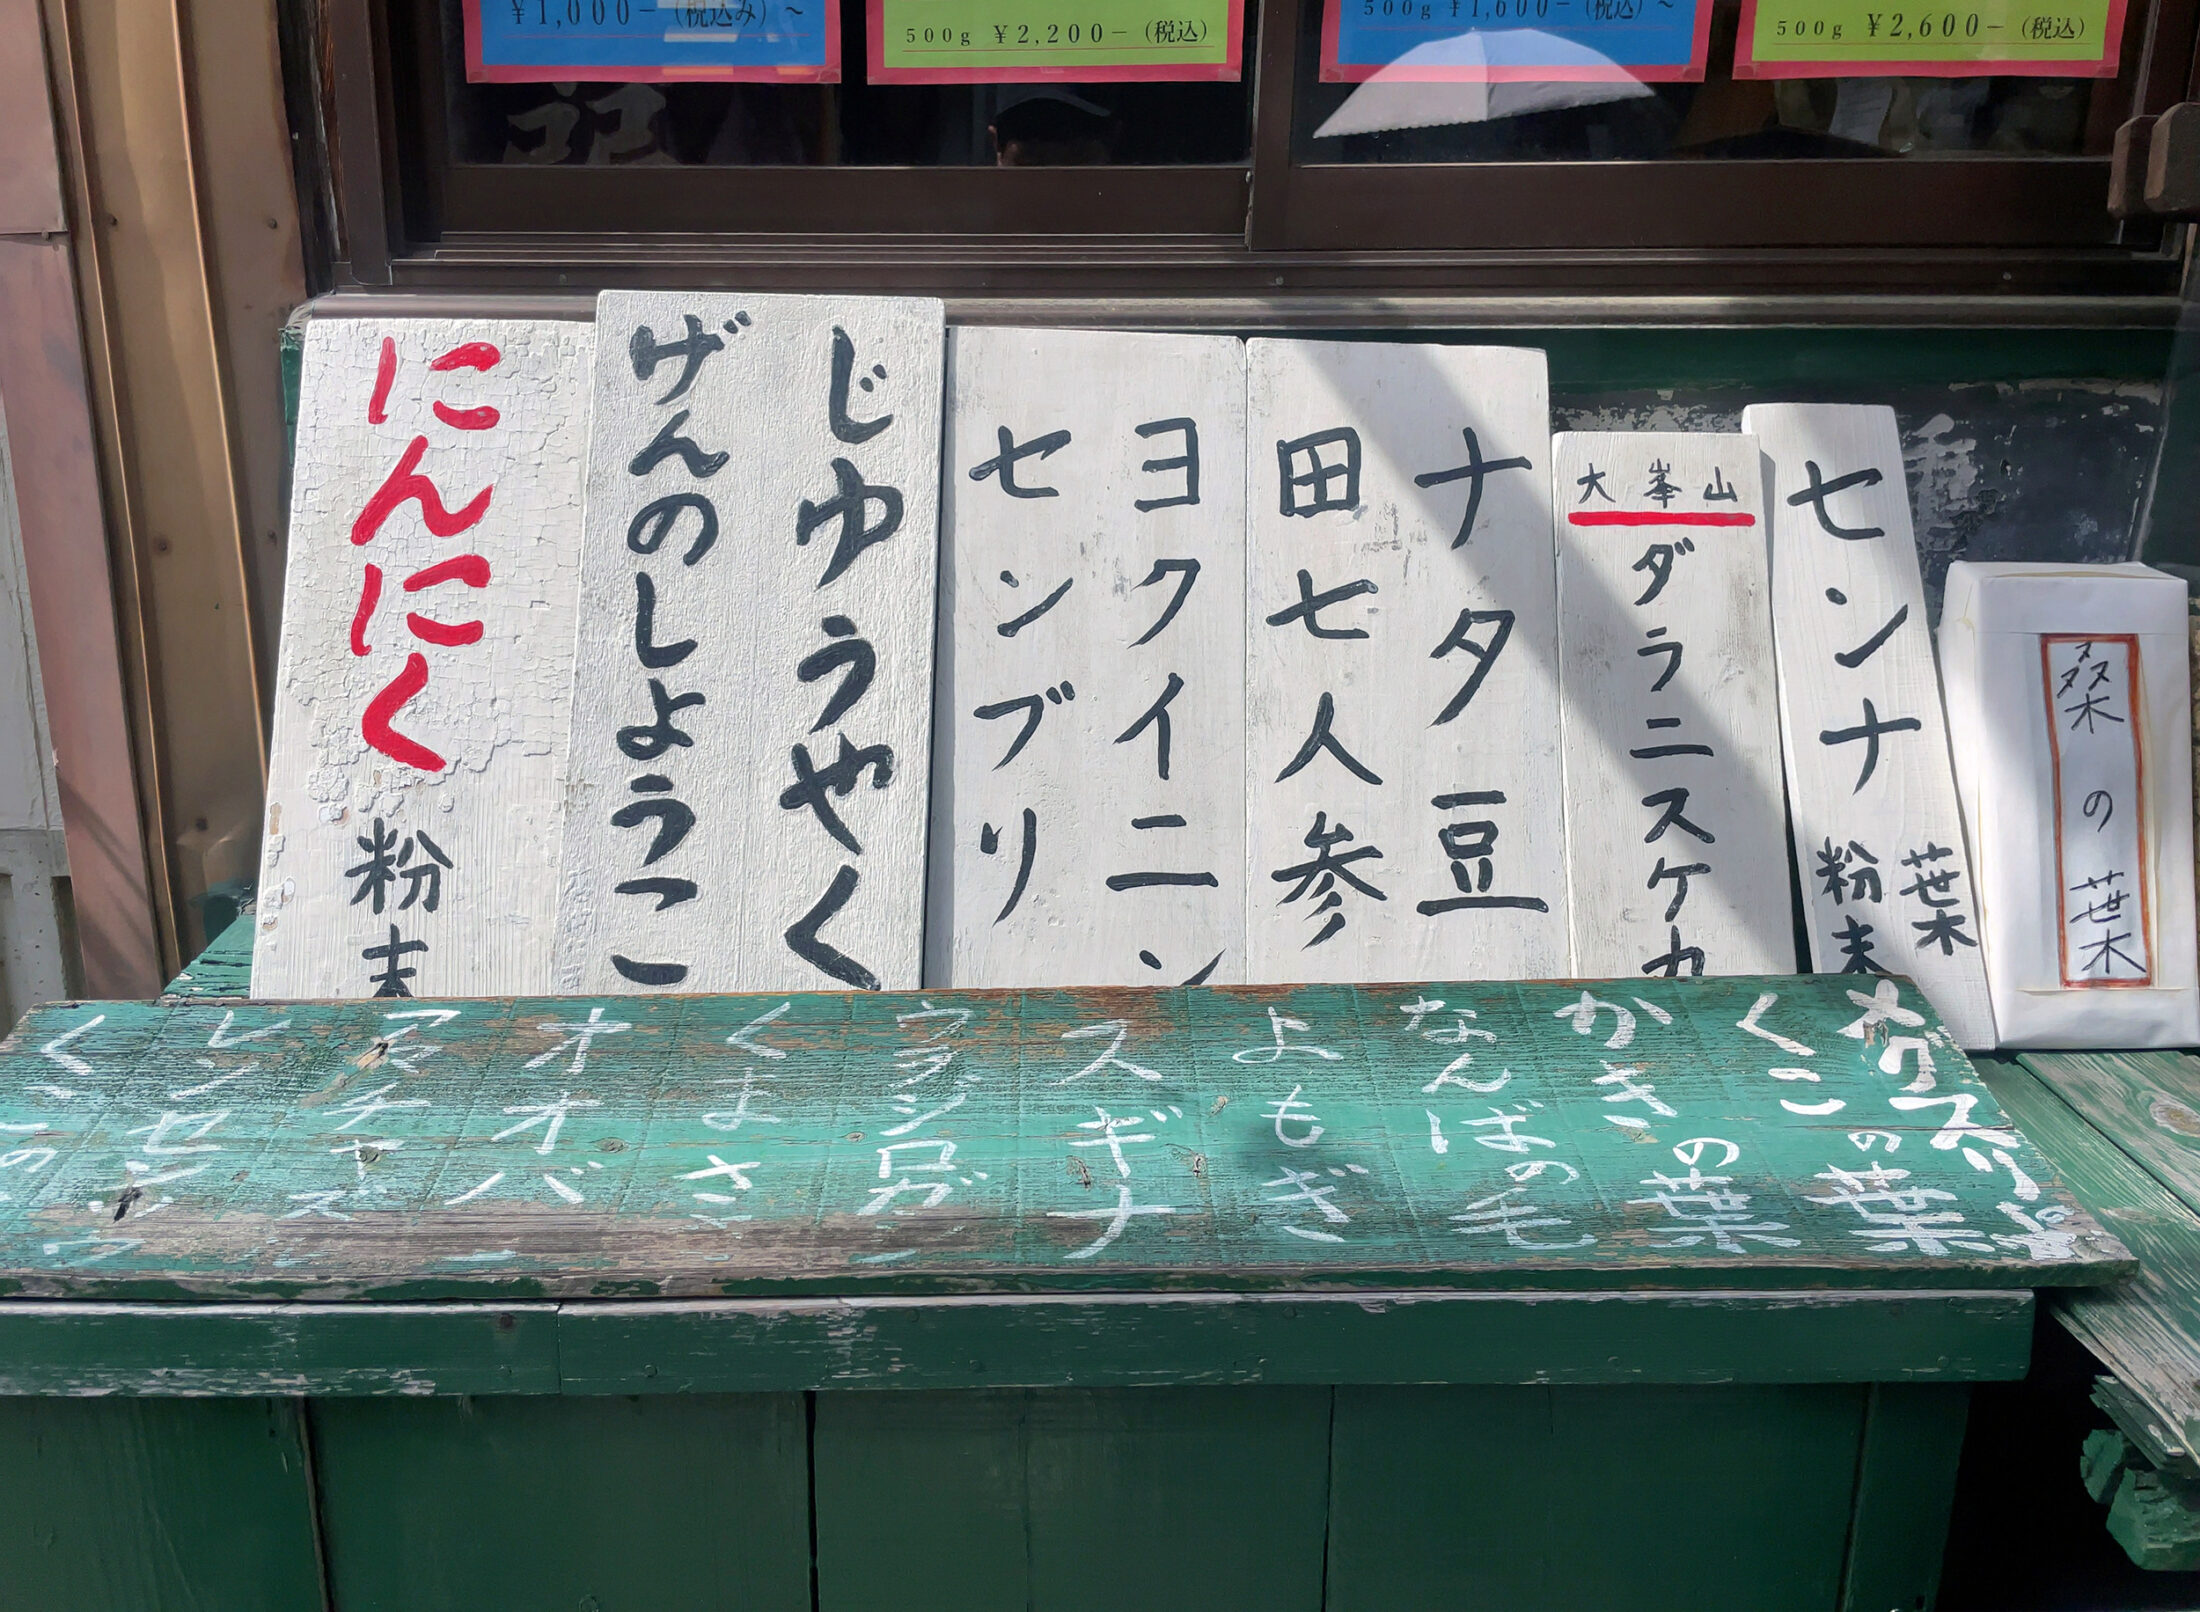 ¥1,000-(税込み)~
500g ¥2,200-(税込)
500g ¥1,600-(税込)~
500g ¥2,600-(税込)
にんにく粉末
じゆうやく
げんのしようこ
ヨクイニン
センブリ
ナタ豆
田七人参
大峯山
ダラニスケ
センナ
葉
粉末
桑の葉
メグスリ
くこの葉
かきの葉
なんばの毛
よもぎ
スギナ
ウラジロガ
くまさ
オオバ
アマチャ
レンセン
くこの